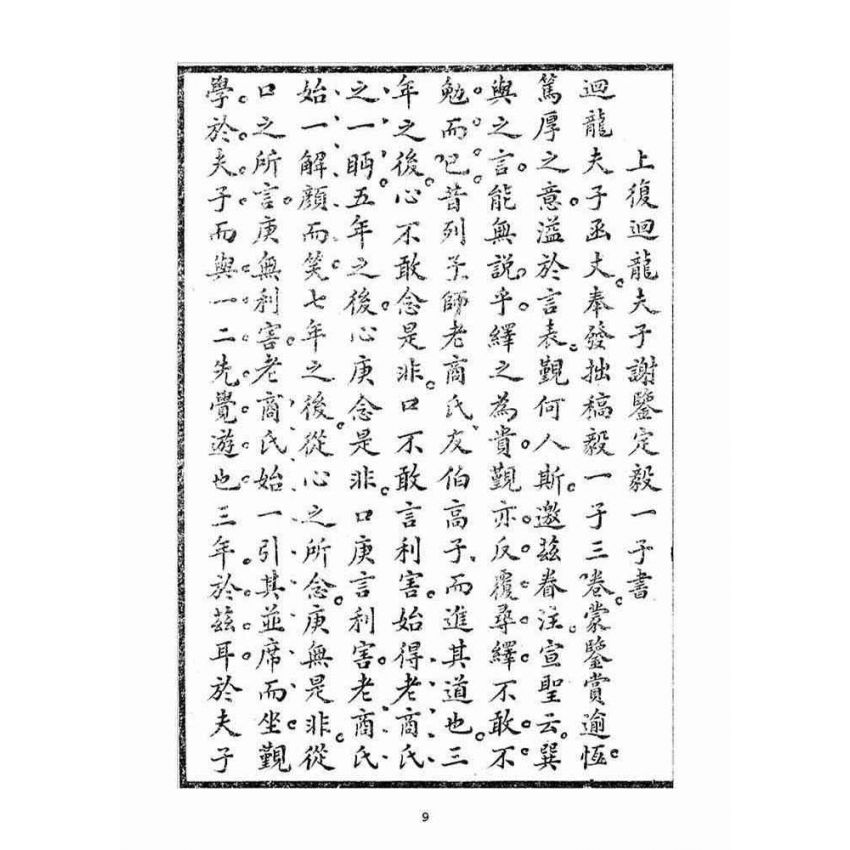 上復迴龍夫子謝鑒定毅一子書
迴龍夫子函丈。奉發拙稿毅一子三卷。蒙鑒賞逾恆。
篤厚之意。溢於言表。觐何人斯。邀茲眷注。宣聖云。巽
與之言。能無說乎。繹之為貴。觐亦反覆尋繹。不敢不
勉。而已。昔列子師老商氏。友伯高子。而進其道也。三
年之後。心不敢念是非。口不敢言利害。始得老商氏
之一眄。五年之後。心庚念是非。口庚言利害。老商氏
始一解顏而笑。七年之後。從心之所念。庚無是非。從
口之所言。庚無利害。老商氏始一引其並席而坐。觐
學於夫子。而與一二先覺遊也。三年於茲。耳於夫子
9